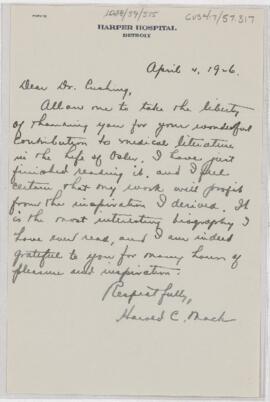 CUS417/57.317
HARPER HOSPITAL
DETROIT
April 2, 1926.
Dear Dr. Cushing,
Allow me to take the liberty
of thanking you for your wonderful
contribution to medical literature
in the Life of Osler. I have just
finished reading it, and I feel
certain that my work will profit
from the inspiration I derived. It
is the most interesting biography I
have ever read, and I am indeed
grateful to you for many hours of
pleasure and inspiration.
Respectfully,
Harold C. Mack